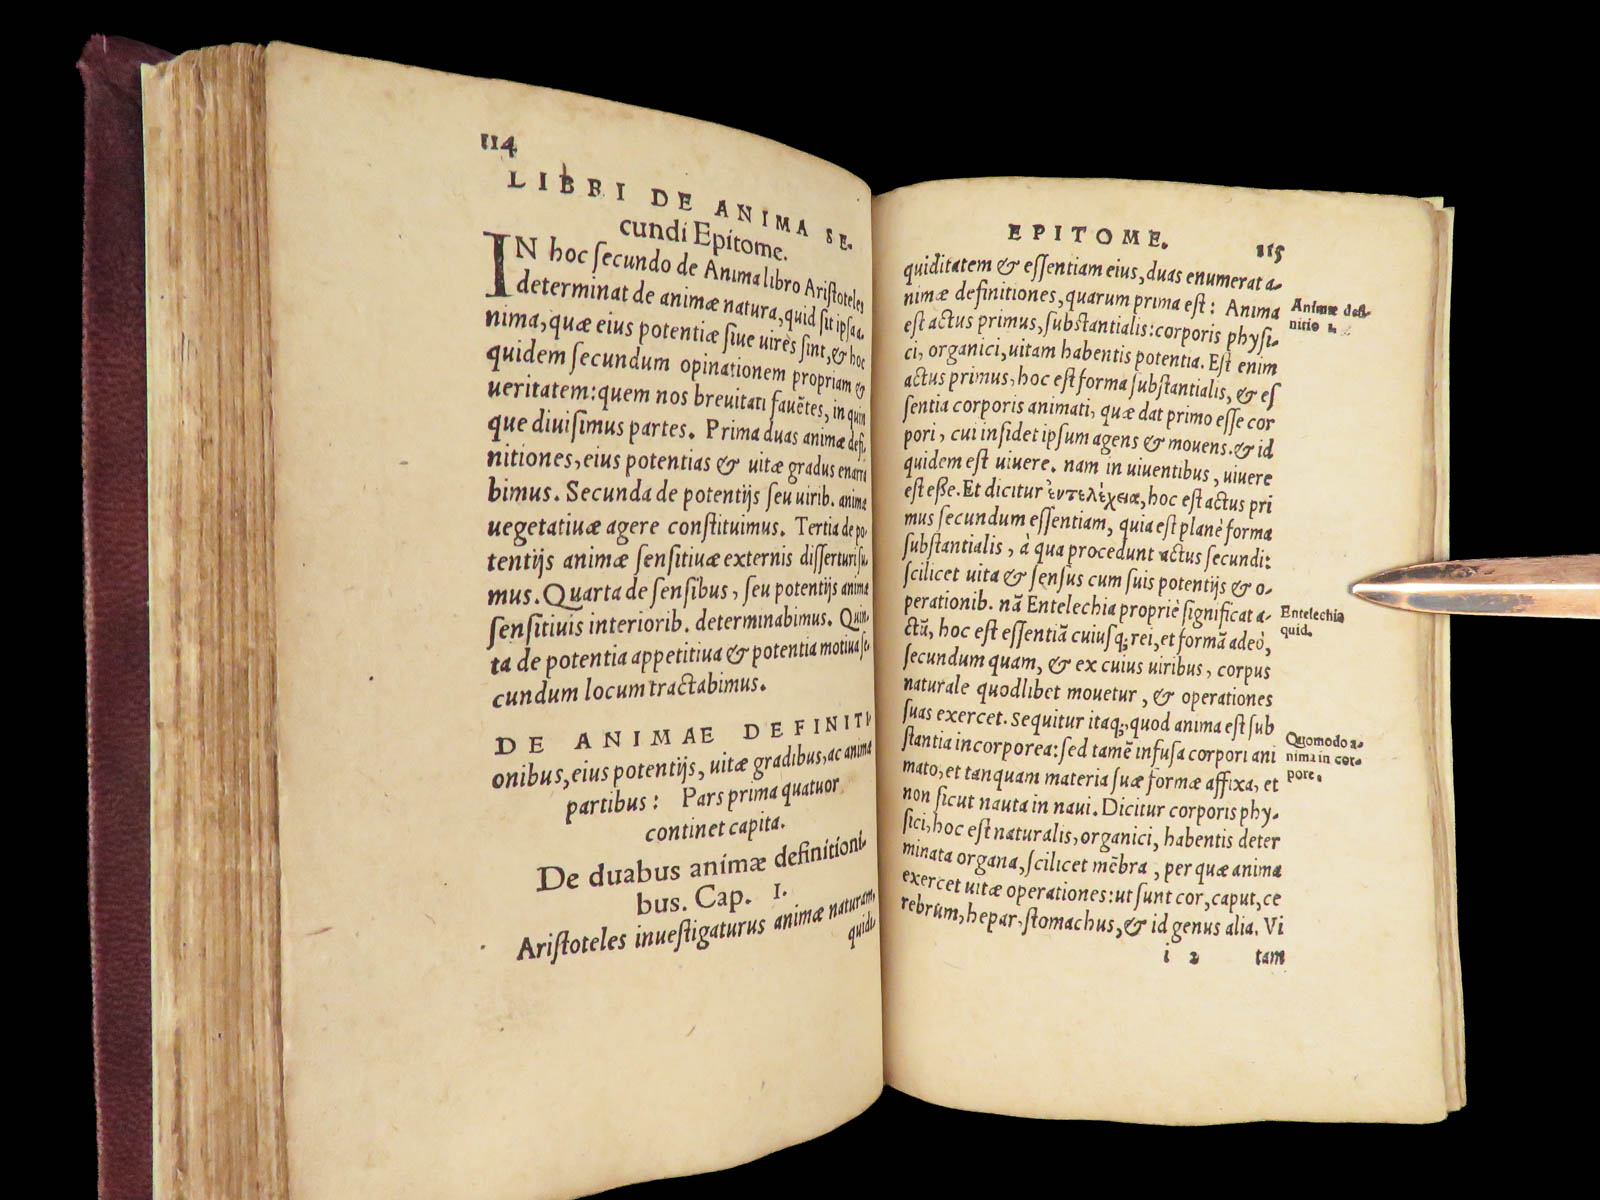 114
LIBRI DE ANIMA SE-
cundi Epitome.
IN hoc ſecundo de Anima libro Ariſtoteles
determinat de animæ natura, quid ſit ipſa a-
nima, quæ eius potentiæ ſiue uires ſint, & hoc
quidem ſecundum opinationem propriam &
ueritatem: quem nos breuitati fauẽtes, in quin
que diuiſimus partes. Prima duas animæ defi-
nitiones, eius potentias & uitæ gradus enarra
bimus. Secunda de potentijs ſeu uirib. animæ
uegetatiuæ agere conſtituimus. Tertia de po-
tentijs animæ ſenſitiuæ externis diſſerturi ſu-
mus. Quarta de ſenſibus, ſeu potentijs animæ
ſenſitiuis interiorib. determinabimus. Quin-
ta de potentia appetitiua & potentia motiua ſe-
cundum locum tractabimus.
DE ANIMAE DEFINITI-
onibus, eius potentijs, uitæ gradibus, ac animæ
partibus: Pars prima quatuor
continet capita.
De duabus animæ definitioni-
bus. Cap. I.
Ariſtoteles inueſtigaturus animæ naturam,
quidi-
EPITOME. 115
quiditatem & eſſentiam eius, duas enumerat a-
nimæ definitiones, quarum prima eſt: Anima
eſt actus primus, ſubſtantialis: corporis phyſi-
ci, organici, uitam habentis potentia. Eſt enim
actus primus, hoc eſt forma ſubſtantialis, & eſ
ſentia corporis animati, quæ dat primo eſſe cor
pori, cui inſidet ipſum agens & mouens. & id
quidem eſt uiuere. nam in uiuentibus, uiuere
eſt eße. Et dicitur ἐντελέχεια, hoc eſt actus pri
mus ſecundum eſſentiam, quia eſt planè forma
ſubſtantialis, à qua procedunt actus ſecundi:
ſcilicet uita & ſenſus cum ſuis potentijs & o-
perationib. nã Entelechia propriè ſignificat a-
ctũ, hoc eſt eſſentiã cuiuſq; rei, et formã adeò,
ſecundum quam, & ex cuius uiribus, corpus
naturale quodlibet mouetur, & operationes
ſuas exercet. Sequitur itaq;, quod anima eſt ſub
ſtantia incorporea: ſed tamẽ infuſa corpori ani
mato, et tanquam materia ſuæ formæ affixa, et
non ſicut nauta in naui. Dicitur corporis phy-
ſici, hoc eſt naturalis, organici, habentis deter
minata organa, ſcilicet mẽbra, per quæ anima
exercet uitæ operationes: ut ſunt cor, caput, ce
rebrum, hepar, ſtomachus, & id genus alia. Vi
i 2 tam
Animæ defi-
nitio 1.
Entelechia
quid.
Quomodo a-
nima in cor-
pore.